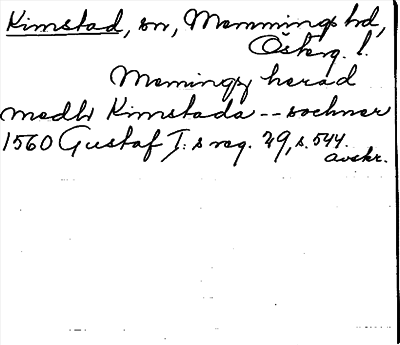 Kimstad, sn, Memmings hd,
Österg. l.
Memingx herad
medh Kimstada -- sochner
1560 Gustaf I:s reg. 29, s. 544.
avskr.